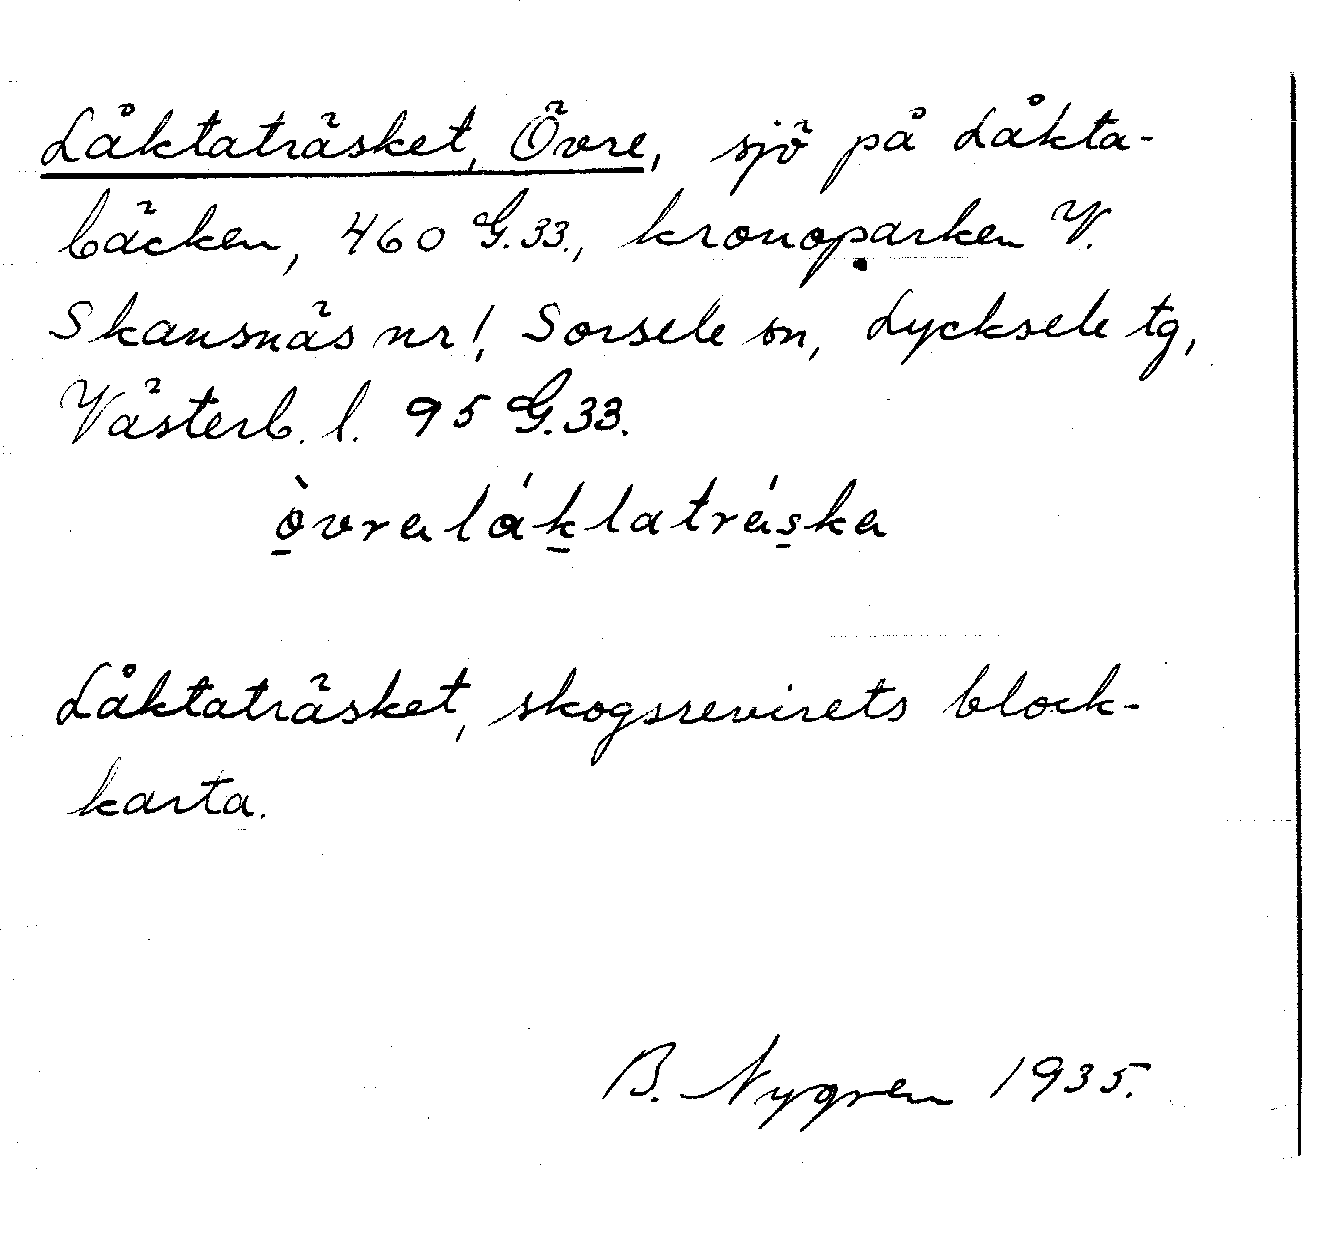 Låktaträsket, Övre, sjö på Låkta-
bäcken, 460 G.33., kronoparken V.
Skansnäs nr 1, Sorsele sn, Lycksele tg,
Västerb. l. 95 G.33.
òvraláklatráska
Låktaträsket, skogsrevirets block-
karta.
B. Nygren 1935.